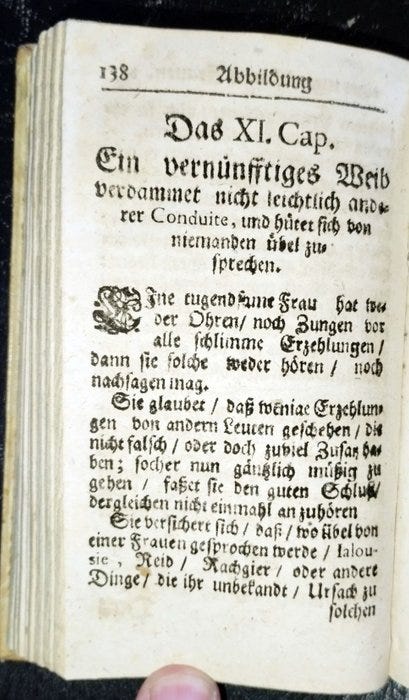 138 Abbildung
Das XI. Cap.
Ein vernünfftiges Weib
verdammet nicht leichtlich ande-
rer Conduite, und hütet sich von
niemanden übel zu-
sprechen.
Eine tugendsame Frau hat we-
der Ohren / noch Zungen vor
alle schlimme Erzehlungen /
dann sie solche weder hören / noch
nachsagen mag.
Sie glaubet / daß wenige Erzehlun-
gen von andern Leuten geschehen / die
nicht falsch / oder doch zuviel Zusatz ha-
ben; socher nun gäntzlich müßig zu
gehen / fasset sie den guten Schluß /
dergleichen nicht einmahl an zuhören
Sie versichert sich / daß / wo übel von
einer Frauen gesprochen werde / Ialou-
sie, Neid / Rachgier / oder andere
Dinge / die ihr unbekandt / Ursach zu
solchen